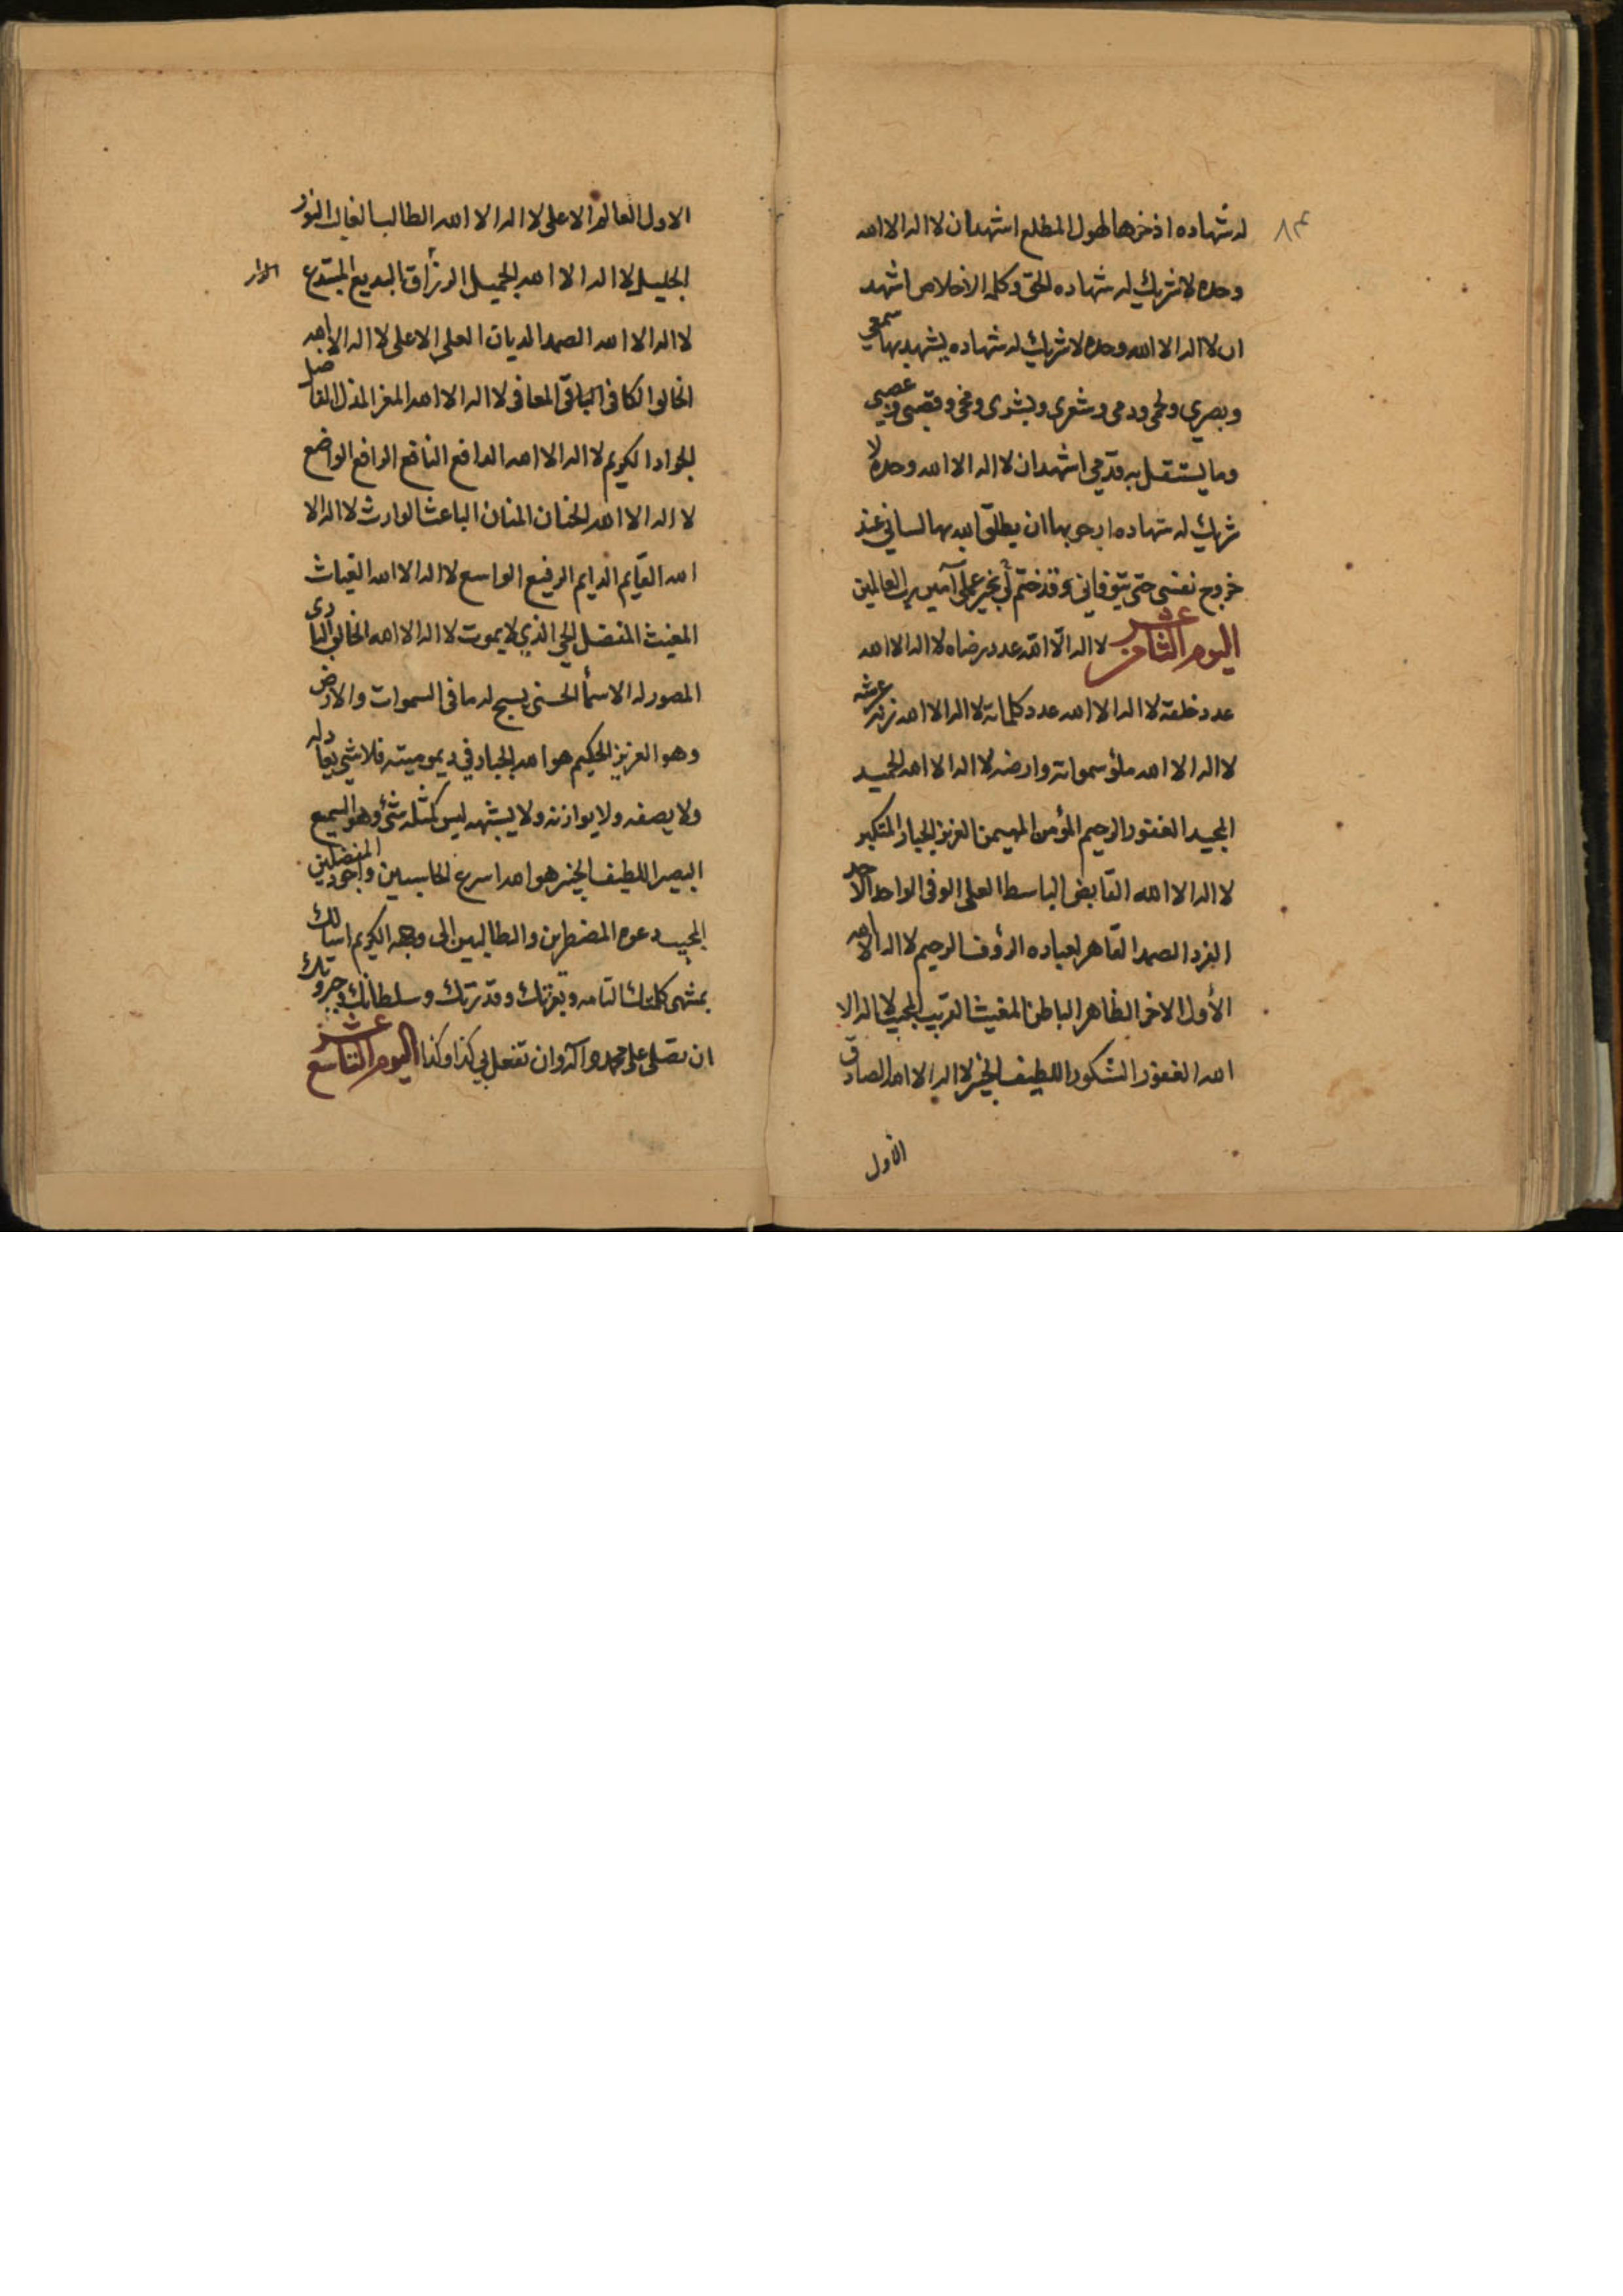 له شهاده اذخرها لهول المطلع اشهد ان لا اله الا الله
وحده لا شريك له شهاده الحق وكلمه الاخلاص اشهد
ان لا اله الا الله وحده لا شريك له شهاده يشهد بها سمعي
وبصري ولحمي ودمي وشعري وبشري ومخي وقصبي وعصبي
وما يستقل به قدمي اشهد ان لا اله الا الله وحده لا
شريك له شهاده ارجو بها ان يطلق الله بها لساني عند
خروج نفسي حتى يتوفاني وقد ختم لي بخير عملي آمين رب العالمين
اليوم الثامن عشر لا اله الّا اللّه عدد رضاه لا اله الا الله
عدد خلقه لا اله الا الله عدد كلماته لا اله الا الله زنه عرشه
لا اله الا الله ملؤ سمواته وارضه لا اله الا الله الحميد
المجيد الغفور الرحيم المؤمن المهيمن العزيز الجبار المتكبر
لا اله الا الله القابض الباسط العلى الوفى الواحد الاحد
الفرد الصمد القاهر لعباده الرؤف الرحيم لا اله الا الله
الأول الاخر الظاهر الباطن المغيث القريب المجيب لا اله الا
الله الغفور الشكور اللطيف الخبير لا اله الا الله الصادق
الأول
الاول العالم الاعلى لا اله الا الله الطالب الغالب النور
الجليل لا اله الا الله الجميل الرزّاق البديع المبتدع
لا اله الا الله الصمد الديان العلى الاعلى لا اله الا الله
الخالق الكافى الباقى المعافى لا اله الا الله المعز المذل الفاضل
الجواد الكريم لا اله الا الله الدافع النافع الرافع الواضع
لا اله الا الله الحنان المنان الباعث الوارث لا اله الا
الله القايم الدايم الرفيع الواسع لا اله الا الله الغياث
المغيث المفضل الحي الذي لا يموت لا اله الا الله الخالق البارى
المصور له الاسمأ الحسنى يسبح له ما فى السموات والارض
وهو العزيز الحكيم هو الله الجبار في ديموميته فلا شي يعادله
ولا يصفه ولا يوازنه ولا يشبهه ليس كمثله شئ وهو السميع
البصير اللطيف الخبير هو الله اسرع الحاسبين واجود المفضلين
المجيب دعوه المضطرين والطالبين الى وجهه الكريم اسالك
بمنتهى كلمتك التامه وبعزتك وقدرتك وسلطانك وجبروتك
ان تصلى على محمد وآله وان تفعل بي كذا وكذا اليوم التاسع عشر